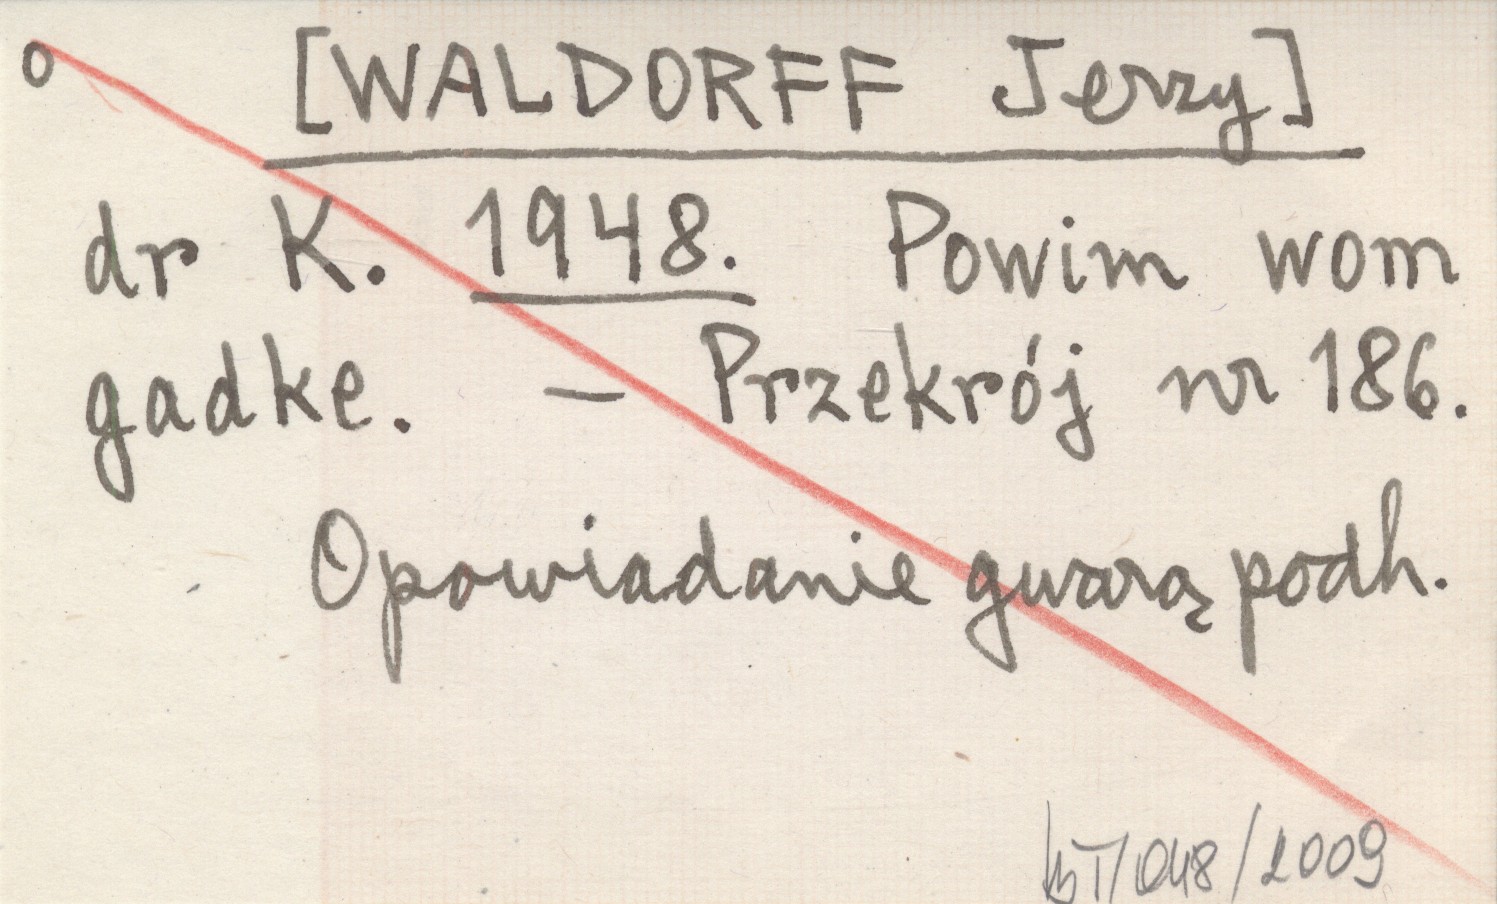 o [WALDORFF Jerzy]
dr K. 1948. Powim wom
gadke. – Przekrój nr 186.
Opowiadanie gwarą podh.
/048/2009